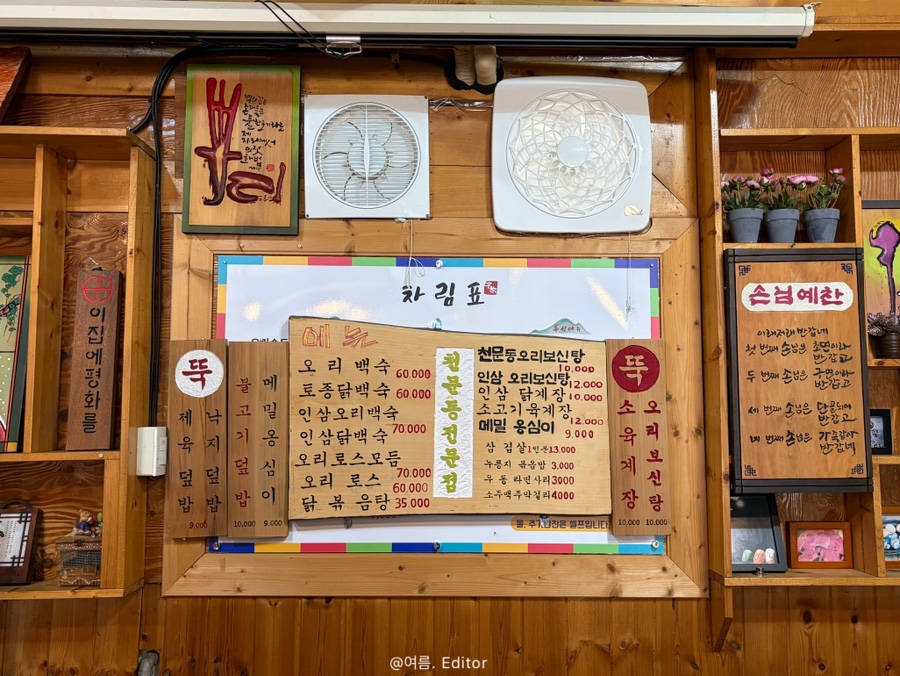 이집에평화를
차림표
메뉴
오리백숙 60.000
토종닭백숙 60.000
인삼오리백숙
인삼닭백숙 70.000
오리로스모듬 70.000
오리 로스 60.000
닭 볶음탕 35.000
천문동전문점
천문동오리보신탕 10.000
인삼 오리보신탕 12.000
인삼 닭계장 10.000
소고기육계장 12.000
메밀 옹심이 9.000
삼겹살1인분13.000
누룽지 볶음밥 3.000
우동 라면사리3000
소주맥주막걸리4000
뚝
제육덮밥
낙지덮밥
9.000
불고기덮밥
10.000
메밀옹심이
9.000
뚝
소육계장
10.000
오리보신탕
10.000
물, 추가반찬은 셀프입니다
손님예찬
이래저래 반갑네
첫 번째 손님은 초면이라
반갑고
두 번째 손님은 구면이라
반갑고
세 번째 손님은 단골되어
반갑고
네 번째 손님은 가족같아
반갑네
@여름. Editor